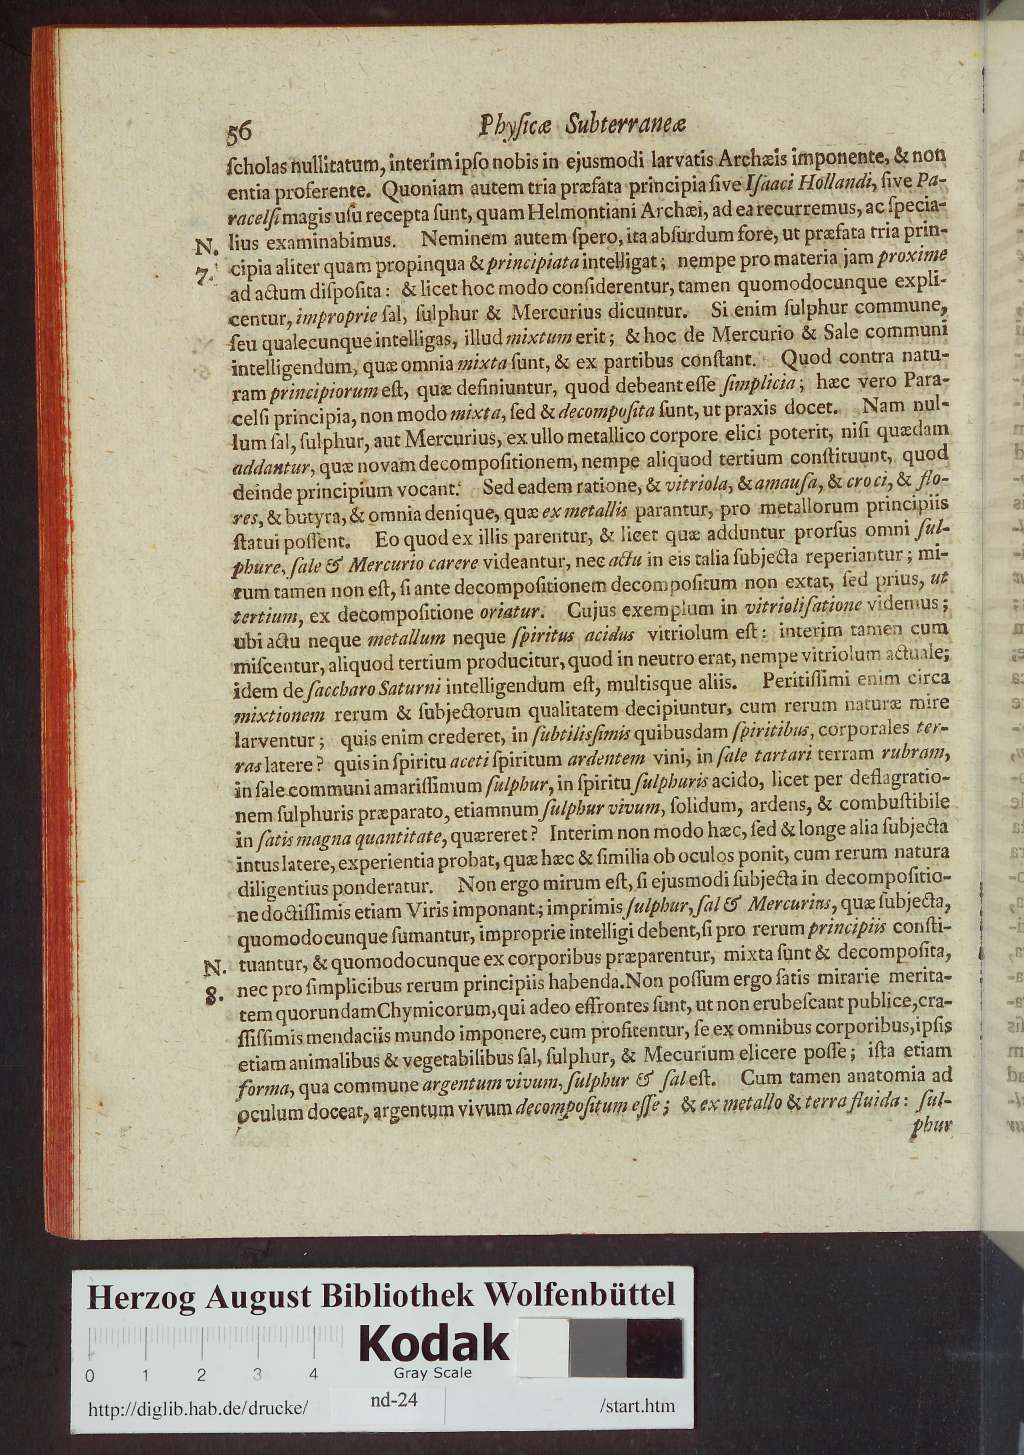 56 Phyſicæ Subterraneæ
ſcholas nullitatum, interim ipſo nobis in ejusmodi larvatis Archæis imponente, & non
entia proferente. Quoniam autem tria præfata principia ſive Iſaaci Hollandi, ſive Pa-
racelſi magis uſu recepta ſunt, quam Helmontiani Archæi, ad ea recurremus, ac ſpecia-
N. lius examinabimus. Neminem autem ſpero, ita abſurdum fore, ut præfata tria prin-
7. cipia aliter quam propinqua & principiata intelligat; nempe pro materia jam proxime
ad actum diſpoſita: & licet hoc modo conſiderentur, tamen quomodocunque expli-
centur, improprie ſal, ſulphur & Mercurius dicuntur. Si enim ſulphur commune,
ſeu qualecunque intelligas, illud mixtum erit; & hoc de Mercurio & Sale communi
intelligendum, quæ omnia mixta ſunt, & ex partibus conſtant. Quod contra natu-
ram principiorum eſt, quæ definiuntur, quod debeant eſſe ſimplicia; hæc vero Para-
celſi principia, non modo mixta, ſed & decompoſita ſunt, ut praxis docet. Nam nul-
lum ſal, ſulphur, aut Mercurius, ex ullo metallico corpore elici poterit, niſi quædam
addantur, quæ novam decompoſitionem, nempe aliquod tertium conſtituunt, quod
deinde principium vocant. Sed eadem ratione, & vitriola, & amauſa, & croci, & flo-
res, & butyra, & omnia denique, quæ ex metallis parantur, pro metallorum principiis
ſtatui poſſent. Eo quod ex illis parentur, & licet quæ adduntur prorſus omni ſul-
phure, ſale & Mercurio carere videantur, nec actu in eis talia ſubjecta reperiantur; mi-
rum tamen non eſt, ſi ante decompoſitionem decompoſitum non extat, ſed prius, ut
tertium, ex decompoſitione oriatur. Cujus exemplum in vitrioliſatione videmus;
ubi actu neque metallum neque ſpiritus acidus vitriolum eſt: interim tamen cum
miſcentur, aliquod tertium producitur, quod in neutro erat, nempe vitriolum actuale;
idem de ſaccharo Saturni intelligendum eſt, multisque aliis. Peritiſſimi enim circa
mixtionem rerum & ſubjectorum qualitatem decipiuntur, cum rerum naturæ mire
larventur; quis enim crederet, in ſubtiliſſimis quibusdam ſpiritibus, corporales ter-
ras latere? quis in ſpiritu aceti ſpiritum ardentem vini, in ſale tartari terram rubram,
in ſale communi amariſſimum ſulphur, in ſpiritu ſulphuris acido, licet per deflagratio-
nem ſulphuris præparato, etiamnum ſulphur vivum, ſolidum, ardens, & combuſtibile
in ſatis magna quantitate, quæreret? Interim non modo hæc, ſed & longe alia ſubjecta
intus latere, experientia probat, quæ hæc & ſimilia ob oculos ponit, cum rerum natura
diligentius ponderatur. Non ergo mirum eſt, ſi ejusmodi ſubjecta in decompoſitio-
ne doctiſſimis etiam Viris imponant; imprimis ſulphur, ſal & Mercurius, quæ ſubjecta,
quomodocunque ſumantur, improprie intelligi debent, ſi pro rerum principiis conſti-
N. tuantur, & quomodocunque ex corporibus præparentur, mixta ſunt & decompoſita,
8. nec pro ſimplicibus rerum principiis habenda. Non poſſum ergo ſatis mirarie merita-
tem quorundam Chymicorum, qui adeo effrontes ſunt, ut non erubeſcant publice, cra-
ſſiſſimis mendaciis mundo imponere, cum profitentur, ſe ex omnibus corporibus, ipſis
etiam animalibus & vegetabilibus ſal, ſulphur, & Mecurium elicere poſſe; iſta etiam
forma, qua commune argentum vivum, ſulphur & ſal eſt. Cum tamen anatomia ad
oculum doceat, argentum vivum decompoſitum eſſe; & ex metallo & terra fluida: ſul-
phur
Herzog August Bibliothek Wolfenbüttel
Kodak
Gray Scale
0 1 2 3 4
http://diglib.hab.de/drucke/ nd-24 /start.htm